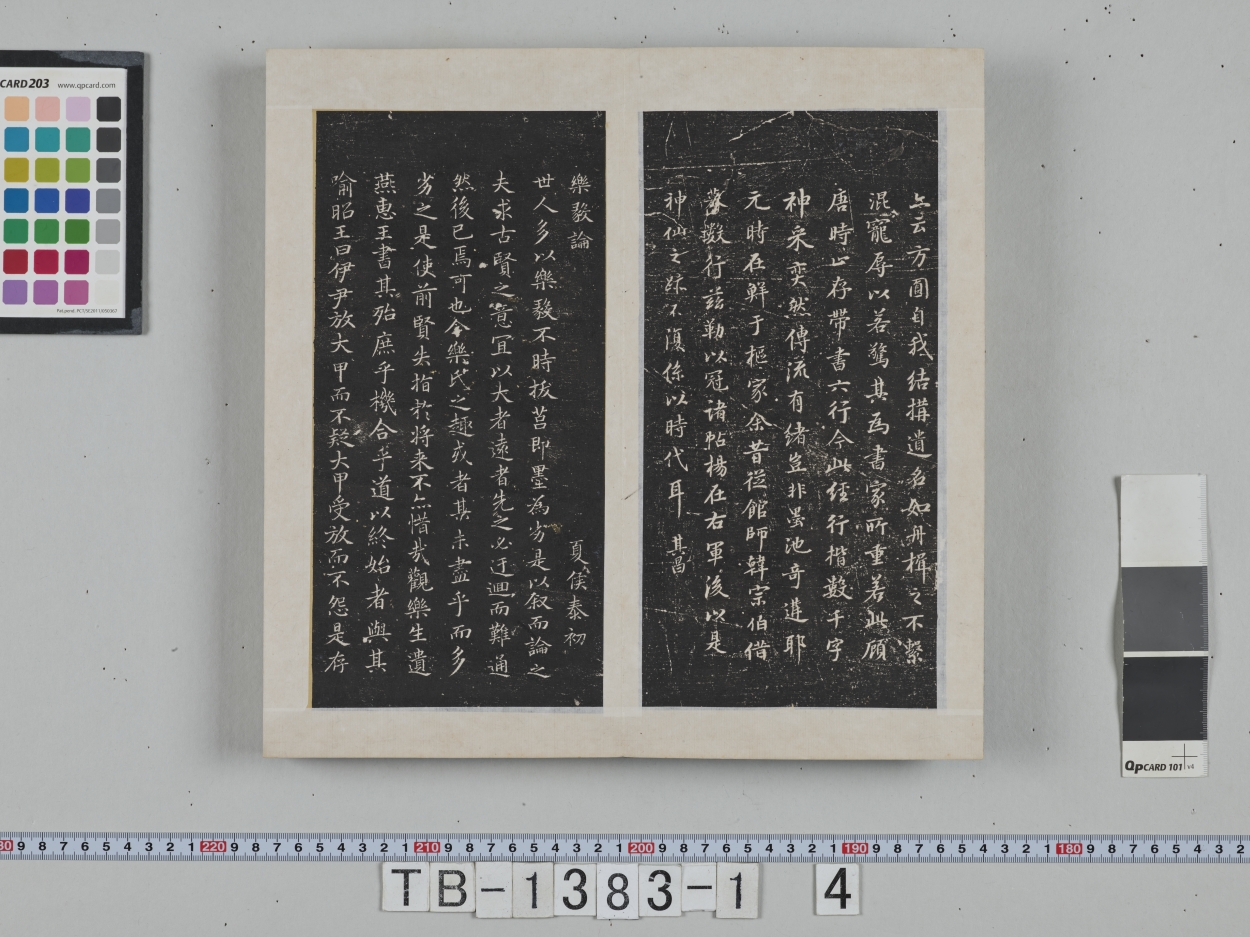 亦云方圓自我結搆遺名如舟楫之不繫
混寵辱以若驚其為書家所重若此顧
唐時止存帶書六行今此經行楷數千字
神采奕然傳流有緒豈非墨池奇遘耶
元時在鮮于樞家余昔從館師韓宗伯借
摹數行茲勒以冠諸帖楊在右軍後以是
神仙之跡不復係以時代耳 其昌
樂毅論 夏侯泰初
世人多以樂毅不時拔莒即墨為劣是以叙而論之
夫求古賢之意宜以大者遠者先之必迂迴而難通
然後已焉可也今樂氏之趣或者其未盡乎而多
劣之是使前賢失指於将来不亦惜哉觀樂生遺
燕惠王書其殆庶乎機合乎道以終始者與其
喻昭王曰伊尹放大甲而不疑大甲受放而不怨是存
CARD 203 www.qpcard.com
QpCARD 101 v4
30 9 8 7 6 5 4 3 2 1 220 9 8 7 6 5 4 3 2 1 210 9 8 7 6 5 4 3 2 1 200 9 8 7 6 5 4 3 2 1 190 9 8 7 6 5 4 3 2 1 180 9 8 7 6 5 4 3 2
TB-1383-1 4